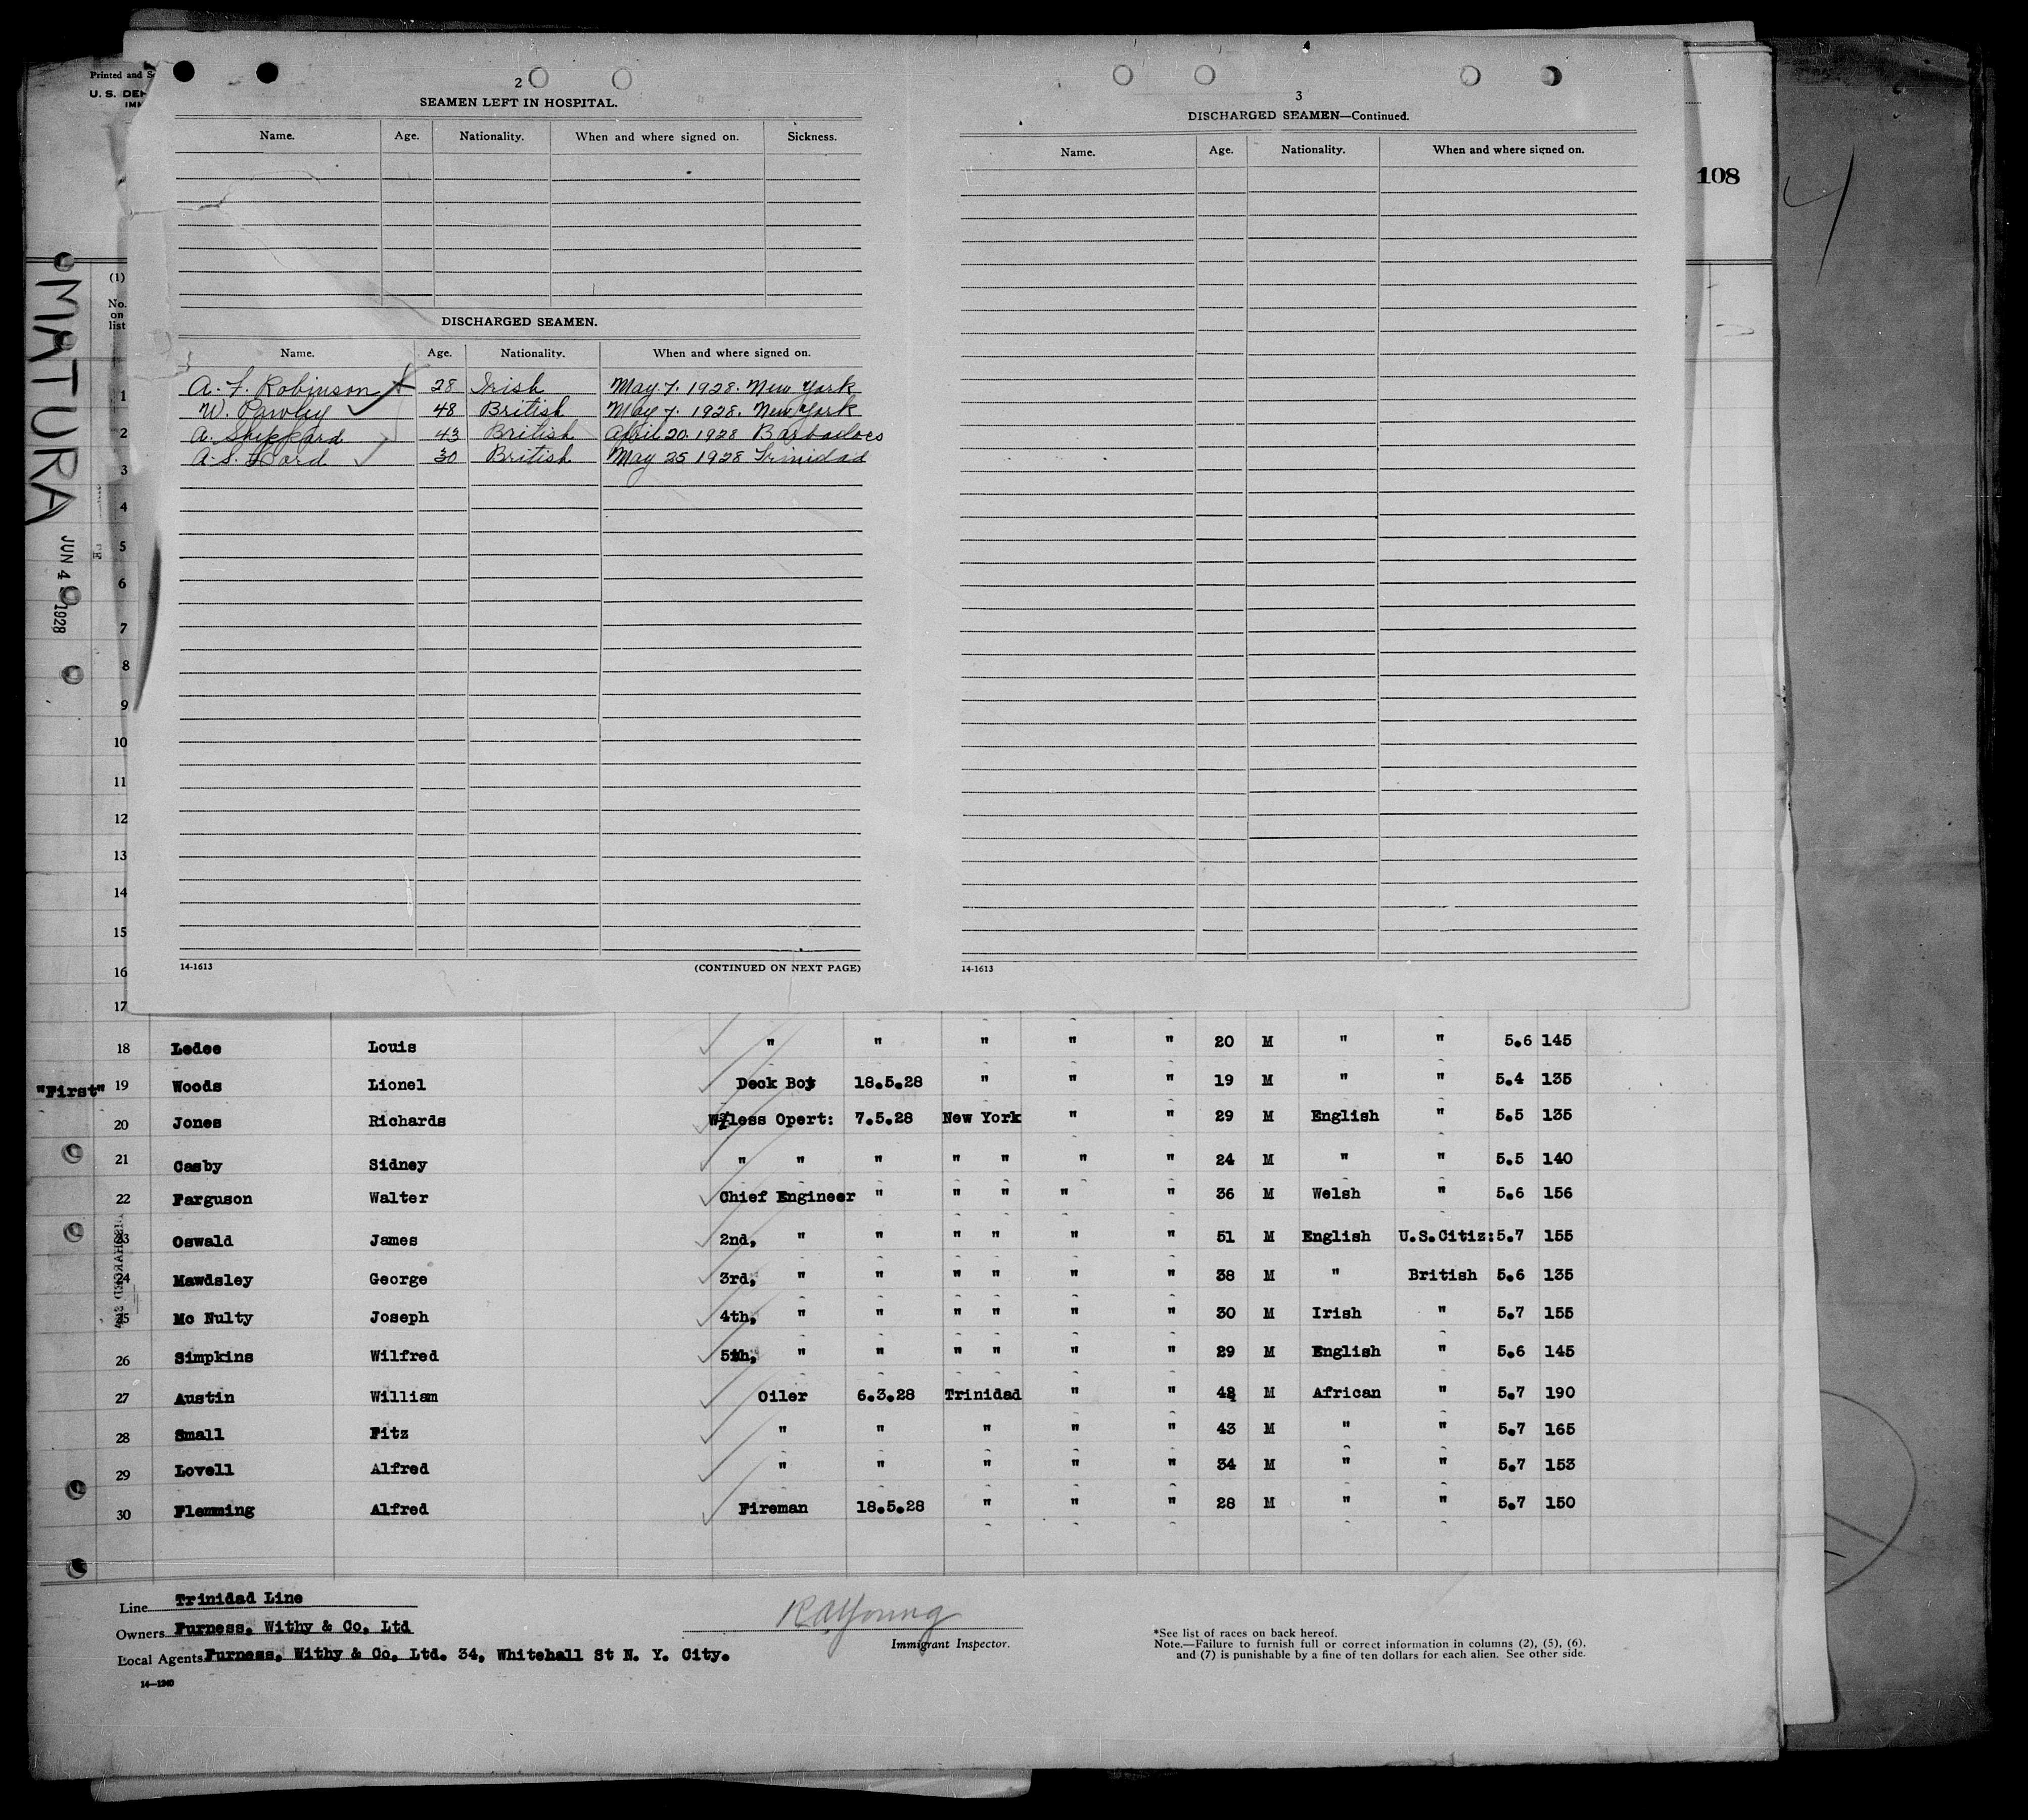 Printed and
U. S. DE
108
MATURA
JUN 4 1928
2
SEAMEN LEFT IN HOSPITAL.
Name. Age. Nationality. When and where signed on. Sickness.
DISCHARGED SEAMEN.
Name. Age. Nationality. When and where signed on.
A. F. Robinson 28 Irish May. 7. 1928. New York
W. Pawley 48 British May 7. 1928. New York
A. Shepard 43 British April 20. 1928 Barbadoes
A. S. 30 British May 25 1928 Trinidad
14-1613 (CONTINUED ON NEXT PAGE)
3
DISCHARGED SEAMEN—Continued.
Name. Age. Nationality. When and where signed on.
14-1613
(1)
No.
on
list
1
2
3
4
5
6
7
8
9
10
11
12
13
14
15
16
17
18 Ledee Louis " " " " " 20 M " " 5.6 145
"First" 19 Woods Lionel Deck Boy 18.5.28 " " " 19 M " " 5.4 135
20 Jones Richards W/less Opert: 7.5.28 New York " " 29 M English " 5.5 135
21 Casby Sidney " " " " " " " 24 M " " 5.5 140
22 Farguson Walter Chief Engineer " " " " " 36 M Welsh " 5.6 156
23 Oswald James 2nd, " " " " " " 51 M English U.S.Citiz: 5.7 155
24 Mawdsley George 3rd, " " " " " " 38 M " British 5.6 135
25 Mc Nulty Joseph 4th, " " " " " " 30 M Irish " 5.7 155
26 Simpkins Wilfred 5th, " " " " " " 29 M English " 5.6 145
27 Austin William Oiler 6.3.28 Trinidad " " M African " 5.7 190
28 Small Fitz " " " " " 43 M " " 5.7 165
29 Lovell Alfred " " " " " 34 M " " 5.7 153
30 Flemming Alfred Fireman 18.5.28 " " " 28 M " " 5.7 150
Line Trinidad Line
Owners Furness, Withy & Co, Ltd
Local Agents Furness, Withy & Co, Ltd. 34, Whitehall St N. Y. City.
14—1240
R A Young
Immigrant Inspector.
*See list of races on back hereof.
Note.—Failure to furnish full or correct information in columns (2), (5), (6),
and (7) is punishable by a fine of ten dollars for each alien. See other side.